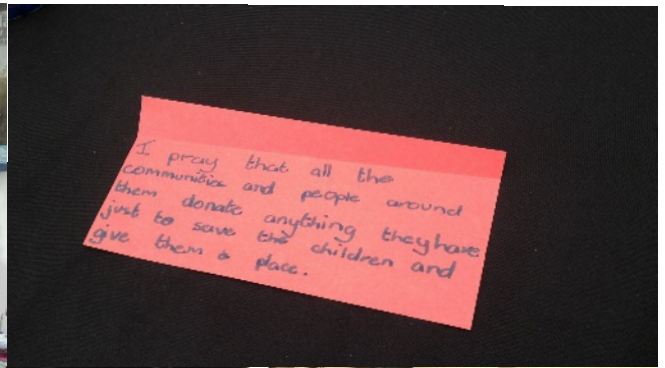 I pray that all the
communities and people around
them donate anything theyhave
just to save the children and
give them a place.